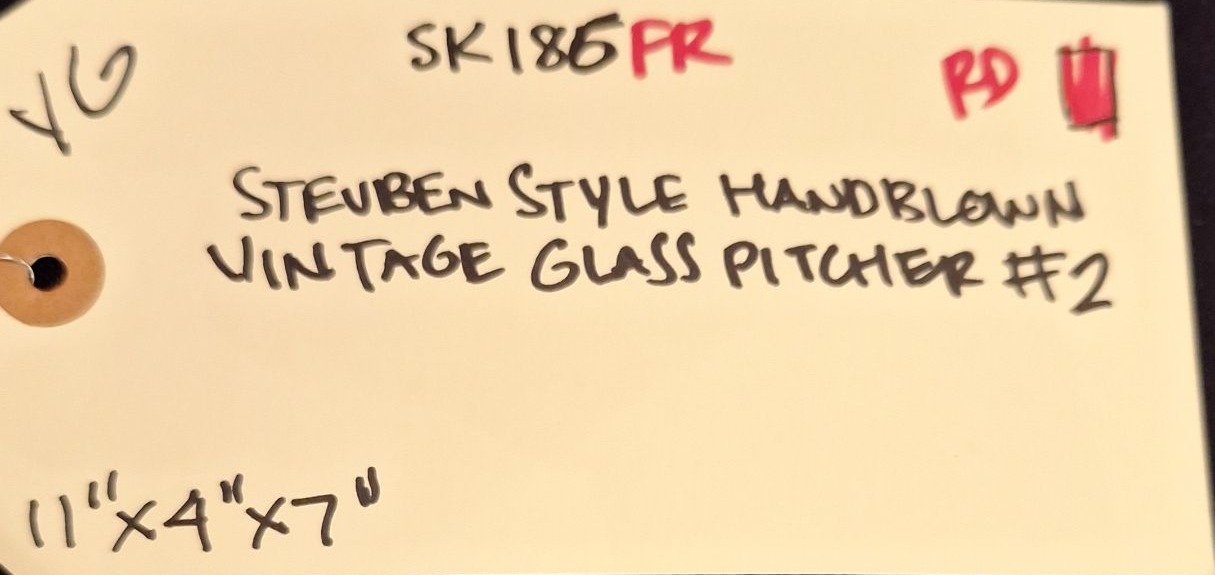 VG
SK186FR
RD
STEUBEN STYLE HANDBLOWN
VINTAGE GLASS PITCHER #2
11"x4"x7"